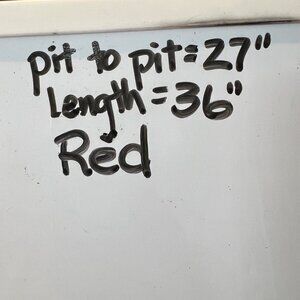 pit to pit=27"
Length=36"
Red